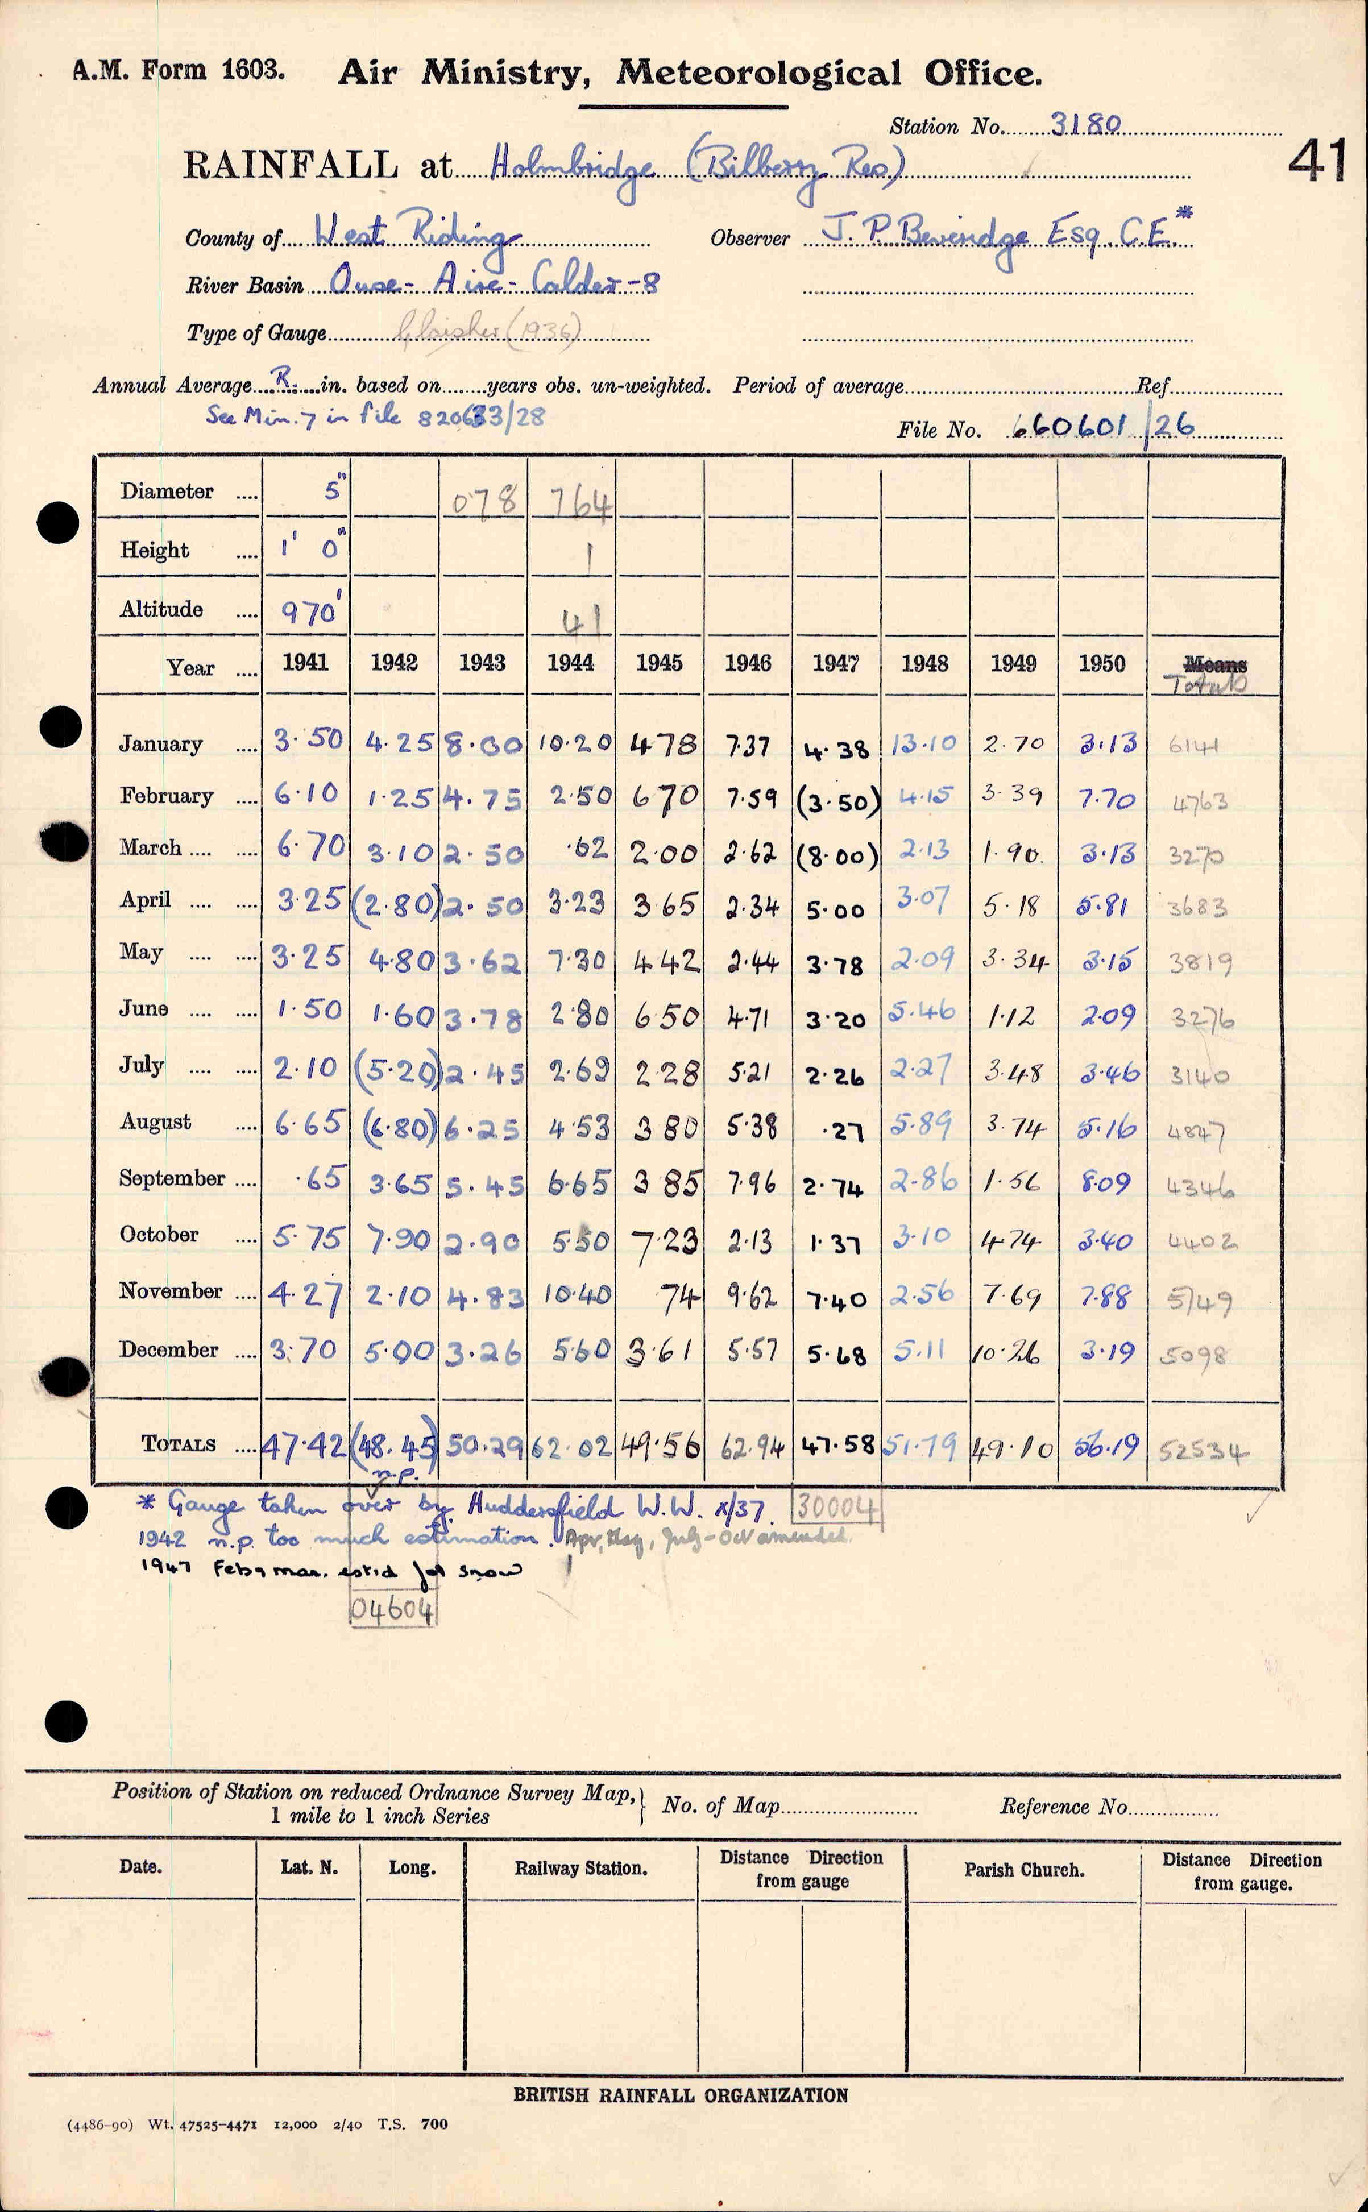 A.M. Form 1603. Air Ministry, Meteorological Office.
Station No. 3180
41
RAINFALL at Holmbridge (Bilberry Res)
County of West Riding Observer J. P. Beveridge Esq. C.E.*
River Basin Ouse - Aire - Calder - 8
Type of Gauge Glaisher (1936)
Annual Average R. in. based on years obs. un-weighted. Period of average Ref.
See Min. 7 in file 820633/28
File No. 660601/26
Diameter 5" 078 764
Height 1' 0" 1
Altitude 970' 41
Year 1941 1942 1943 1944 1945 1946 1947 1948 1949 1950 Means
Totals
January 3.50 4.25 8.00 10.20 478 7.37 4.38 13.10 2.70 3.13 6141
February 6.10 1.25 4.75 2.50 670 7.59 (3.50) 4.15 3.39 7.70 4763
March 6.70 3.10 2.50 .62 2.00 2.62 (8.00) 2.13 1.90 3.13 3270
April 3.25 (2.80) 2.50 3.23 3 65 2.34 5.00 3.07 5.18 5.81 3683
May 3.25 4.80 3.62 7.30 4 42 2.44 3.78 2.09 3.34 3.15 3819
June 1.50 1.60 3.78 2.80 6 50 4.71 3.20 5.46 1.12 2.09 3276
July 2.10 (5.20) 2.45 2.69 2 28 5.21 2.26 2.27 3.48 3.46 3140
August 6.65 (6.80) 6.25 4.53 3 80 5.38 .27 5.89 3.74 5.16 4847
September .65 3.65 5.45 6.65 3 85 7.96 2.74 2.86 1.56 8.09 4346
October 5.75 7.90 2.90 5.50 7.23 2.13 1.37 3.10 4.74 3.40 4402
November 4.27 2.10 4.83 10.40 74 9.62 7.40 2.56 7.69 7.88 5749
December 3.70 5.00 3.26 5.60 3.61 5.57 5.68 5.11 10.26 3.19 5098
TOTALS 47.42 (48.45) 50.29 62.02 49.56 62.94 47.58 51.79 49.10 56.19 52534
n.p.
* Gauge taken over by Huddersfield W.W. x/37. 30004
1942 n.p. too much estimation. Apr, May, July - Oct amended.
1947 Feb & Mar. estd for snow
04604
Position of Station on reduced Ordnance Survey Map, } No. of Map Reference No.
1 mile to 1 inch Series
Date. Lat. N. Long. Railway Station. Distance Direction from gauge Parish Church. Distance Direction from gauge.
BRITISH RAINFALL ORGANIZATION
(4486-90) Wt. 47525-4471 12,000 2/40 T.S. 700